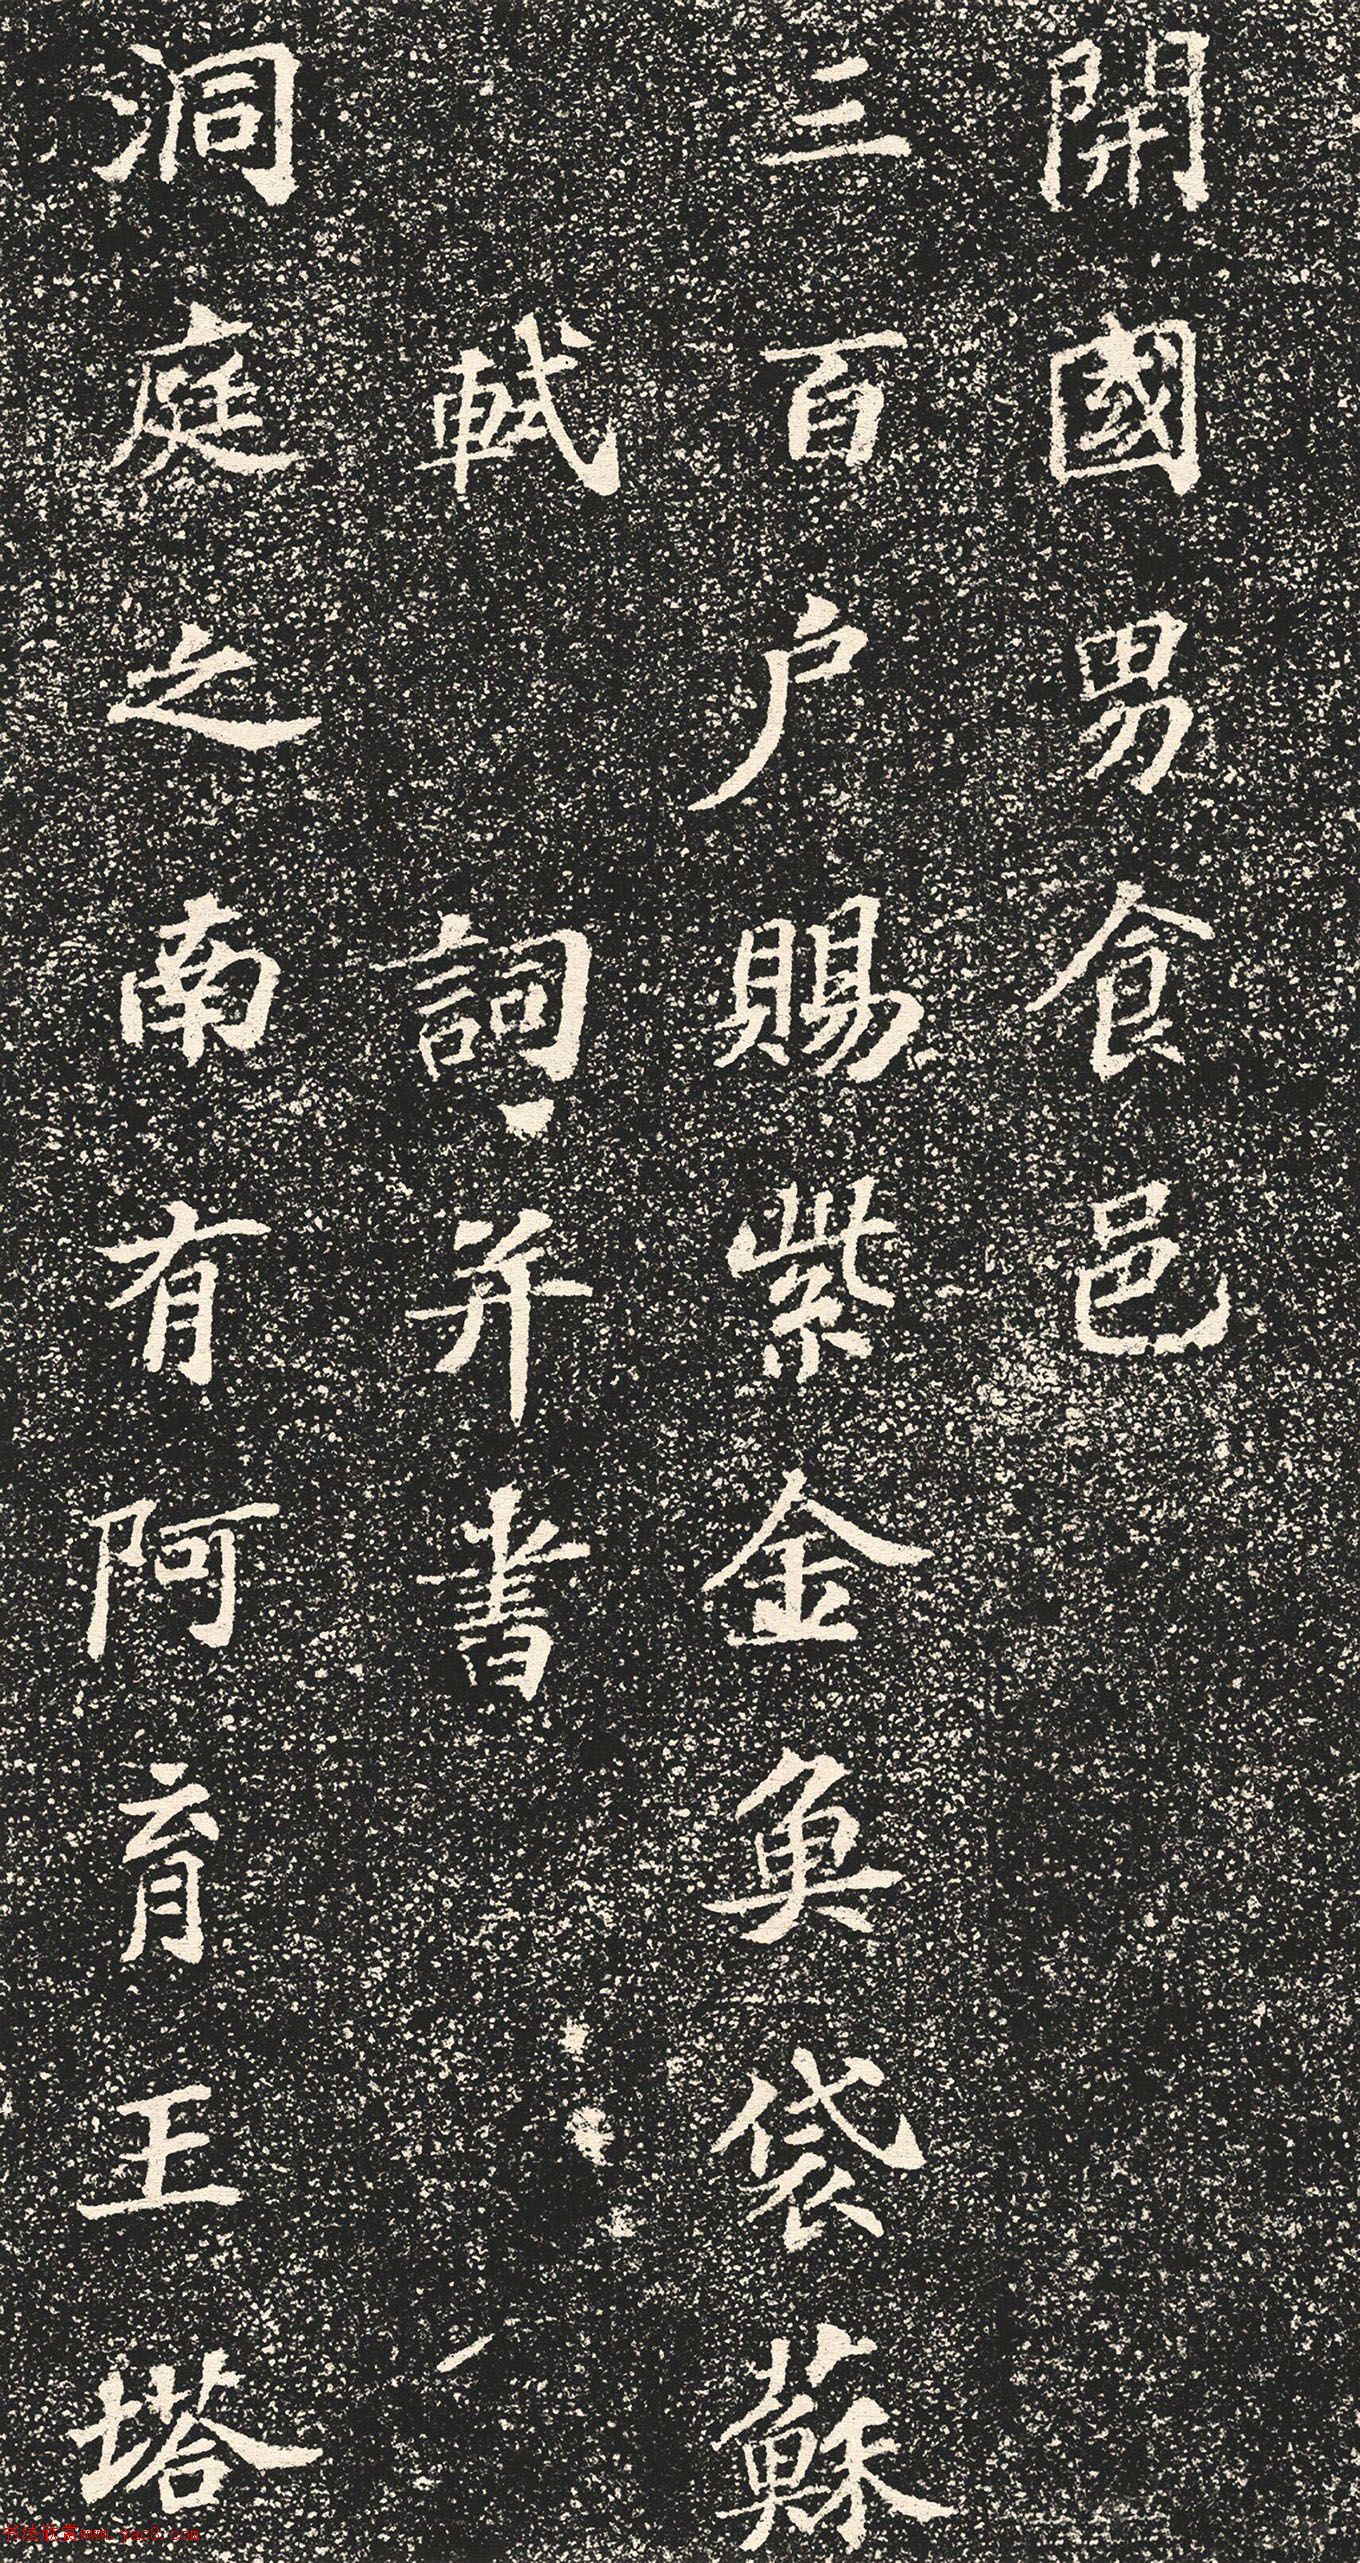 開國男食邑
三百户賜紫金魚袋蘇
軾詞并書
洞庭之南有阿育王塔
书法欣赏www.yac8.com